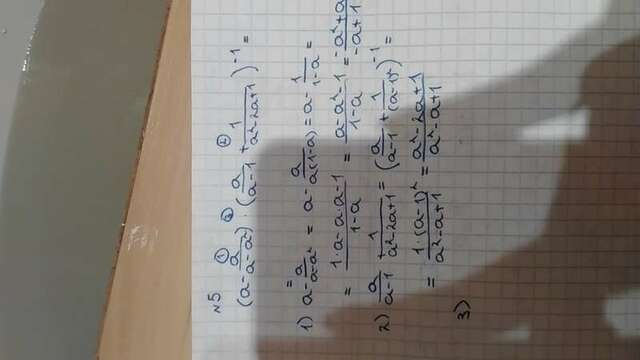 №5
① ③ ②
(a - a/(a - a²)) · (a/(a-1) + 1/(a²-2a+1))⁻¹ =
1) a - a/(a-a²) = a - a/(a(1-a)) = a - 1/(1-a) =
= (1·a-a·a-1)/(1-a) = (a-a²-1)/(1-a) = (-a²+a)/(-a+1)
2) a/(a-1) 1/(a²-2a+1) = (a/(a-1) + 1/(a-1)²)⁻¹ =
= (1·(a-1)²)/(a²-a+1) = (a²-2a+1)/(a²-a+1)
3)